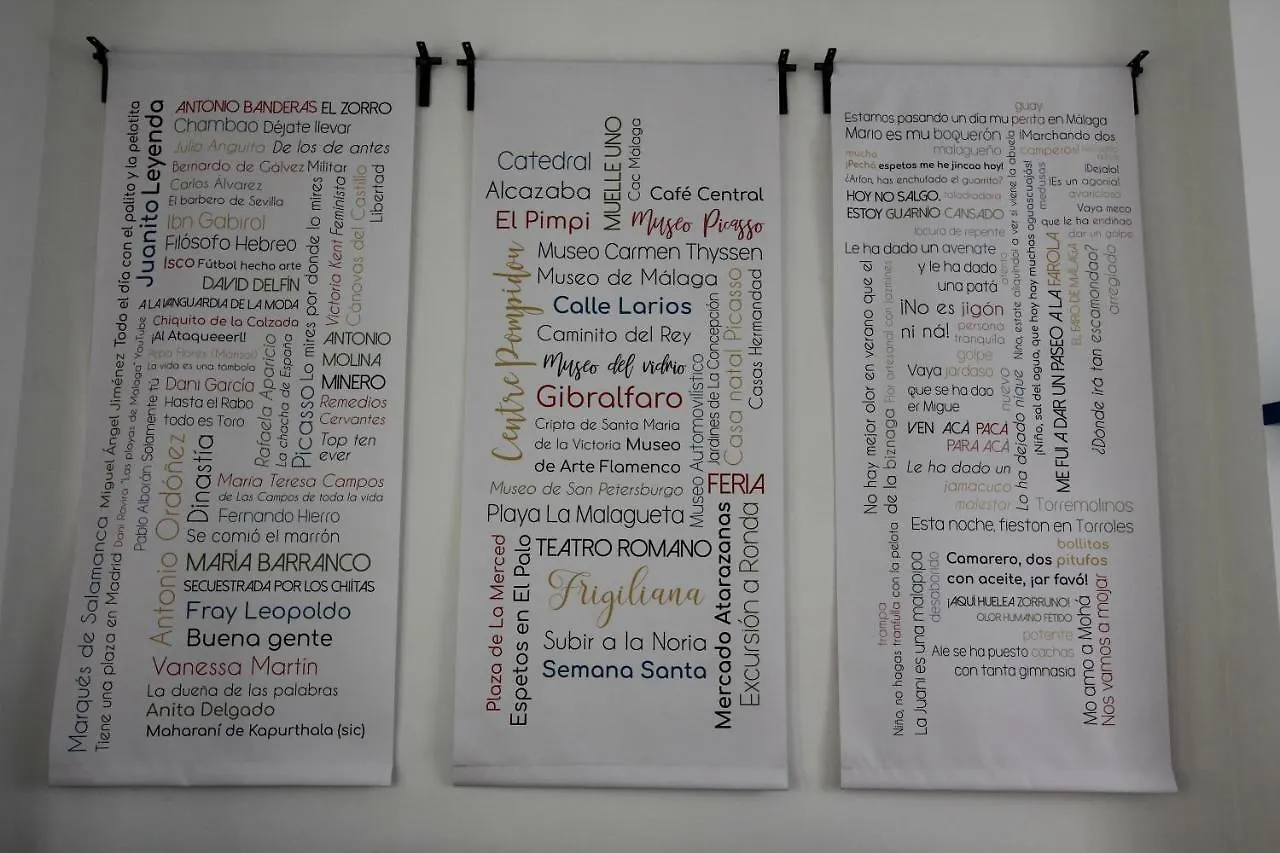 ANTONIO BANDERAS EL ZORRO
Chambao Déjate llevar
Julia Anguita De los de antes
Bernardo de Gálvez Militar
Carlos Álvarez
El barbero de Sevilla
Ibn Gabirol
Filósofo Hebreo
ISCO Fútbol hecho arte
DAVID DELFÍN
A LA VANGUARDIA DE LA MODA
Chiquito de la Calzada
¡Al Ataqueeerl!
Pepa Flores (Marisol)
La vida es una tómbola
Dani García
Hasta el Rabo
todo es Toro
Juanito Leyenda
Todo el día con el palito y la pelotita
Miguel Ángel Jiménez
Marqués de Salamanca
Tiene una plaza en Madrid
Dani Rovira "Las playas de Málaga" YouTube
Pablo Alborán Solamente tú
Antonio Ordóñez
Dinastía
Rafaela Aparicio
La chacha de España
Picasso Lo mires por donde lo mires
Victoria Kent Feminista
Cánovas del Castillo
Libertad
ANTONIO
MOLINA
MINERO
Remedios
Cervantes
Top ten
ever
María Teresa Campos
de Las Campos de toda la vida
Fernando Hierro
Se comió el marrón
MARÍA BARRANCO
SECUESTRADA POR LOS CHIÍTAS
Fray Leopoldo
Buena gente
Vanessa Martín
La dueña de las palabras
Anita Delgado
Maharaní de Kapurthala (sic)
Catedral
Alcazaba
El Pimpi
MUELLE UNO
Cac Málaga
Café Central
Museo Picasso
Centre Pompidou
Museo Carmen Thyssen
Museo de Málaga
Calle Larios
Caminito del Rey
Museo del vidrio
Gibralfaro
Cripta de Santa Maria
de la Victoria Museo
de Arte Flamenco
Museo de San Petersburgo
Museo Automovilístico
Jardines de La Concepción
Casa natal Picasso
Casas Hermandad
FERIA
Playa La Malagueta
TEATRO ROMANO
Frigiliana
Subir a la Noria
Semana Santa
Plaza de La Merced
Espetos en El Palo
Mercado Atarazanas
Excursión a Ronda
guay
Estamos pasando un día mu perita en Málaga
Mario es mu boquerón
malagueño
¡Marchando dos
camperos!
mucho
¡Pechá espetos me he jincao hoy!
¿Arfon, has enchufado el guarrito?
HOY NO SALGO,
taladradora
ESTOY GUARNÍO CANSADO
locura de repente
¡Dejalo!
¡Es un agonía!
avaricioso
Vaya meco
que le ha endiñao
dar un golpe
Le ha dado un avenate
y le ha dado
una patá
¡No es jigón
ni ná!
persona
tranquila
golpe
Vaya jardaso
que se ha dao
er Migue
VEN ACÁ PACÁ
PARA ACÁ
Le ha dado un
jamacuco
malestar
No hay mejor olor en verano que el
de la biznaga Flor artesanal con jazmines
Lo ha dejado nique
nuevo
Niño, estate aliquindoi a ver si viene la abuela
atento
¡Niño, sal del agua, que hoy hay muchas aguascuajás!
medusas
ME FUI A DAR UN PASEO A LA FAROLA
EL FARO DE MÁLAGA
¿Donde irá tan escamondao?
arreglado
Torremolinos
Esta noche, fieston en Torroles
bollitos
Camarero, dos pitufos
con aceite, ¡ar favó!
¡AQUÍ HUELE A ZORRUNO!
OLOR HUMANO FÉTIDO
potente
Ale se ha puesto cachas
con tanta gimnasia
trampa
Niño, no hagas tranfulla con la pelota
La Juani es una malapipa
desaborido
Mo amo a Mohá
Nos vamos a mojar